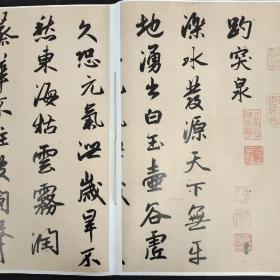 趵突泉
濼水發源天下無平
地湧出白玉壺谷虛
久恐元氣泄歲旱不
愁東海枯雲霧潤
蒸華不注波瀾聲